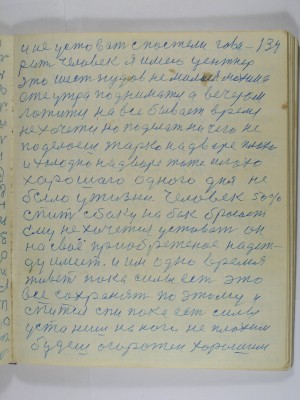 и не устоват с постели гово- 134
рит человек я имею центнер
это шест пудов не малая махина
его утра поднимат а вечером
ложити на все бывает время
не хочети но подымат ничего не
поделоеш жарко на дворе плохо
и холодно на дворе тоже плохо
хорошаго одного дня не
было у жизни человек 50%
спит с боку на бок бросает
ему не хочетися устоват он
на своё приобретеное надеж-
ду имеет. и им одно время
живет пока силы ест это
все сохранят по этому и
спится спи пока ест силы
уста ниш на ноги не плохим
будеш огорожен хорошим